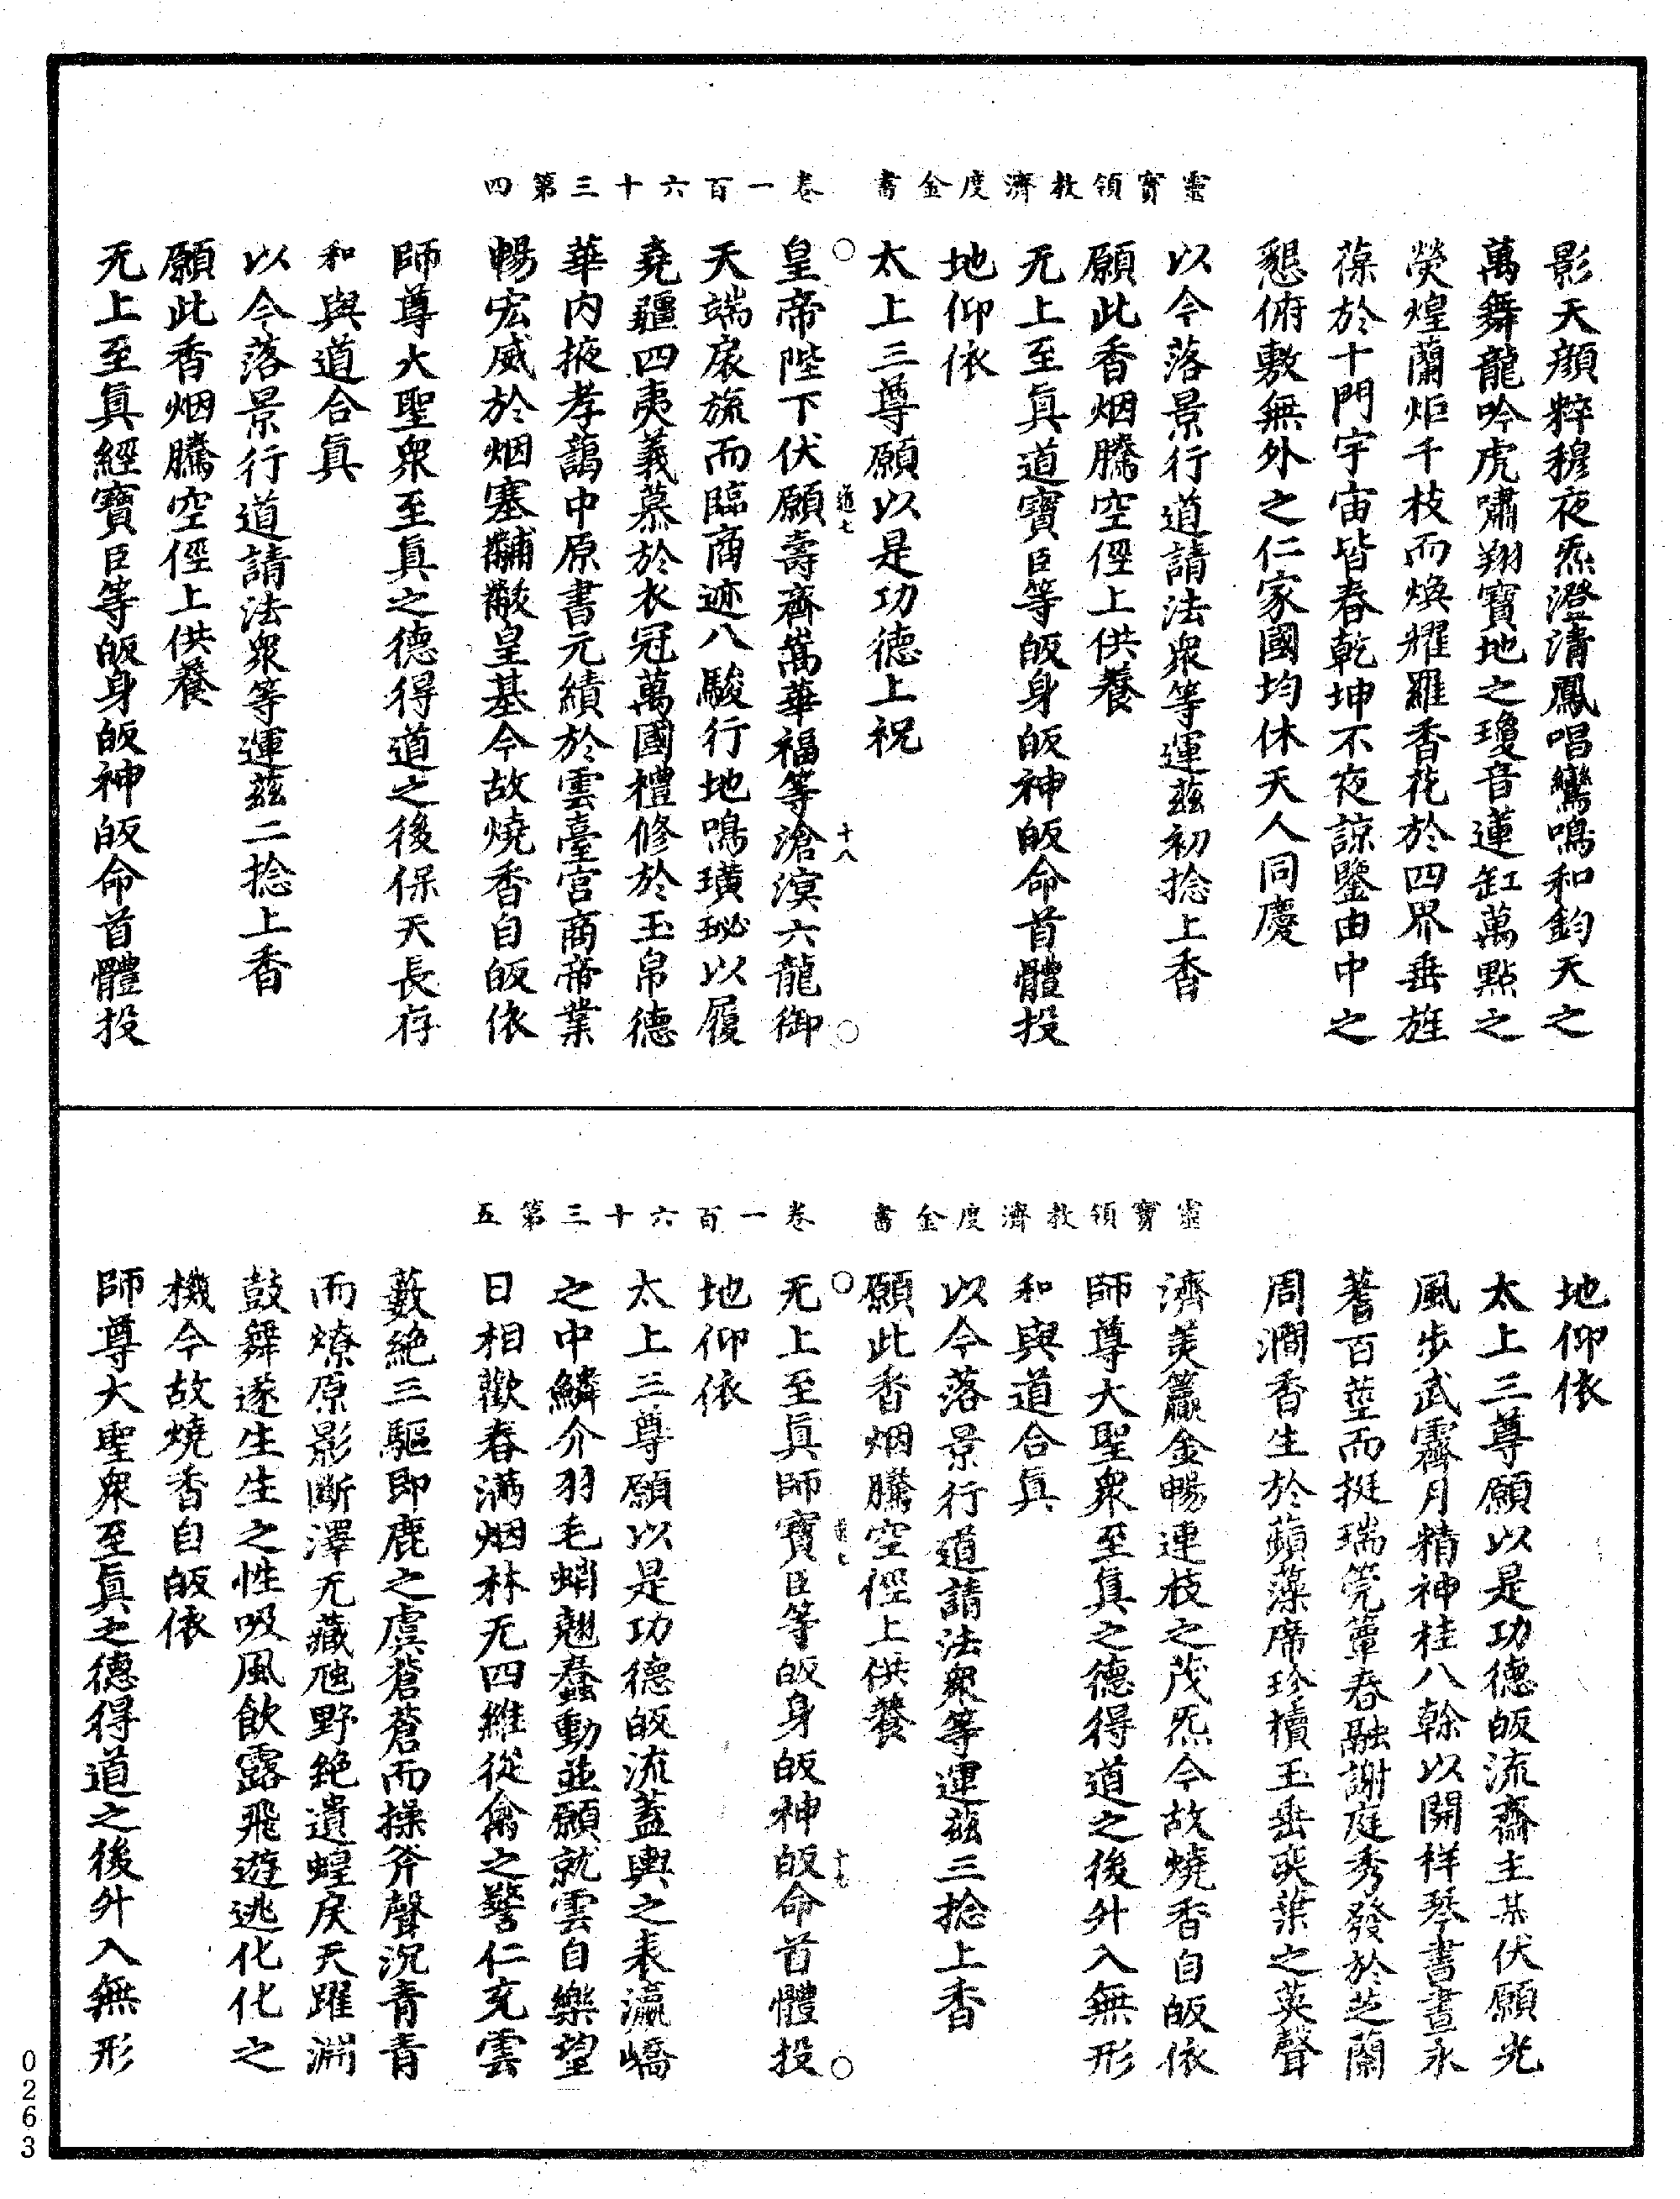 靈寶領教濟度金書　卷一百六十三第四
影天顔粹穆夜炁澄清鳳唱鸞鳴和鈞天之
萬舞龍吟虎嘯翔寶地之瓊音蓮缸萬點之
熒煌蘭炬千枝而煥耀羅香花於四界垂旌
葆於十門宇宙皆春乾坤不夜諒鑒由中之
懇俯敷無外之仁家國均休天人同慶
以今落景行道請法衆等運茲初捻上香
願此香烟騰空徑上供養
无上至眞道寶臣等皈身皈神皈命首體投
地仰依
太上三尊願以是功德上祝
道七　十八
皇帝陛下伏願壽齊嵩華福等滄溟六龍御
天端扆旒而臨商迹八駿行地鳴璜珌以履
堯疆四夷義慕於衣冠萬國禮修於玉帛德
華内掖孝藹中原書元績於雲臺宫商帝業
暢宏威於烟塞黼黻皇基今故燒香自皈依
師尊大聖衆至眞之德得道之後保天長存
和與道合眞
以今落景行道請法衆等運茲二捻上香
願此香烟騰空徑上供養
无上至眞經寶臣等皈身皈神皈命首體投
靈寶領教濟度金書　卷一百六十三第五
地仰依
太上三尊願以是功德皈流齋主某伏願光
風步武霽月精神桂八榦以開祥琴書晝永
蓍百莖而挺瑞筦簟春融謝庭秀發於芝蘭
周澗香生於蘋藻席珍櫝玉垂奕葉之英聲
濟美籯金暢連枝之茂炁今故燒香自皈依
師尊大聖衆至眞之德得道之後升入無形
和與道合眞
以今落景行道請法衆等運茲三捻上香
願此香烟騰空徑上供養
道七　十九
无上至眞師寶臣等皈身皈神皈命首體投
地仰依
太上三尊願以是功德皈流蓋輿之表瀛嶠
之中鱗介羽毛蛸翹蠢動並願就雲自樂望
日相歡春滿烟林无四維從禽之警仁充雲
藪絶三驅即鹿之虞蒼蒼而操斧聲沉青青
而燎原影斷澤无藏虺野絶遺蝗戾天躍淵
鼓舞遂生生之性吸風飲露飛遊逃化化之
機今故燒香自皈依
師尊大聖衆至眞之德得道之後升入無形
0263